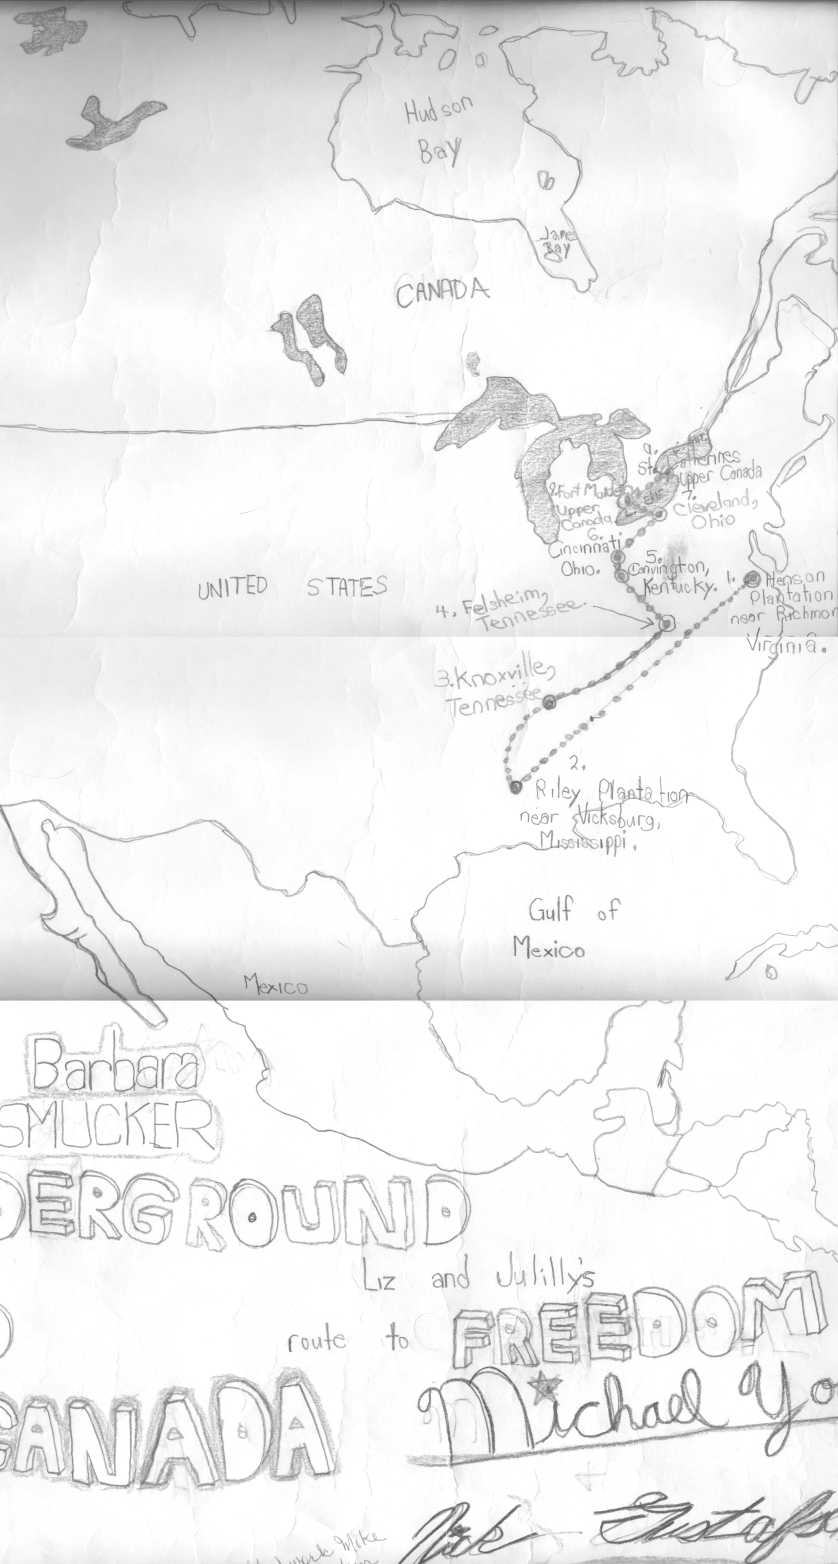 Hudson
Bay
James
Bay
CANADA
9.
St. Catherines
Upper Canada
8. Fort Malden
Upper
Canada
Erie
7.
Cleveland,
Ohio
6.
Cincinnati
Ohio.
5.
Convington,
Kentucky.
1. Henson
Plantation
near Richmon
Virginia.
UNITED STATES
4. Felsheim,
Tennessee
3. Knoxville,
Tennessee
2.
Riley Plantation
near Vicksburg,
Mississippi.
Gulf of
Mexico
Mexico
Barbara
SMUCKER
DERGROUND
Liz and Julilly's
route to FREEDOM
CANADA
Michael Yo
Nick Gustafso
Mike